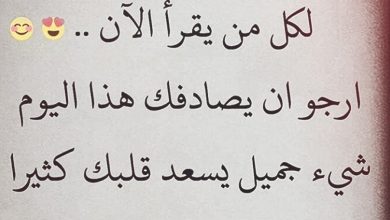 لكل من يقرأ الآن .. 😍😊
ارجو ان يصادفك هذا اليوم
شيء جميل يسعد قلبك كثيرا